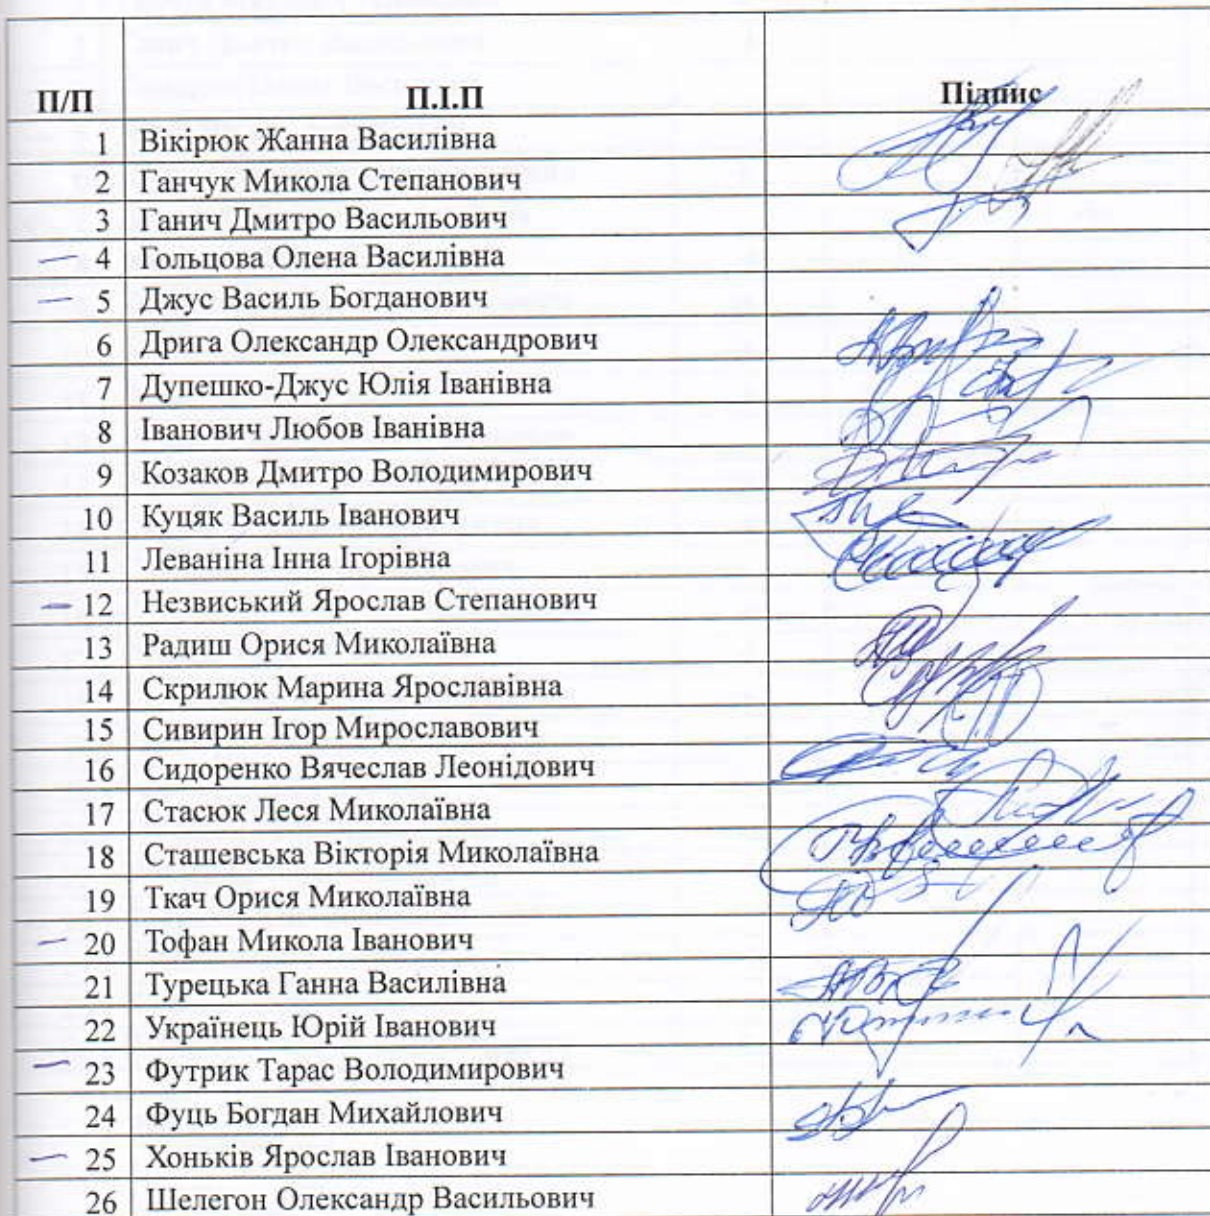 П/П П.І.П Підпис
1 Вікірюк Жанна Василівна
2 Ганчук Микола Степанович
3 Ганич Дмитро Васильович
4 Гольцова Олена Василівна
5 Джус Василь Богданович
6 Дрига Олександр Олександрович
7 Дупешко-Джус Юлія Іванівна
8 Іванович Любов Іванівна
9 Козаков Дмитро Володимирович
10 Куцяк Василь Іванович
11 Леваніна Інна Ігорівна
12 Незвиський Ярослав Степанович
13 Радиш Орися Миколаївна
14 Скрилюк Марина Ярославівна
15 Сивирин Ігор Мирославович
16 Сидоренко Вячеслав Леонідович
17 Стасюк Леся Миколаївна
18 Сташевська Вікторія Миколаївна
19 Ткач Орися Миколаївна
20 Тофан Микола Іванович
21 Турецька Ганна Василівна
22 Українець Юрій Іванович
23 Футрик Тарас Володимирович
24 Фуць Богдан Михайлович
25 Хоньків Ярослав Іванович
26 Шелегон Олександр Васильович